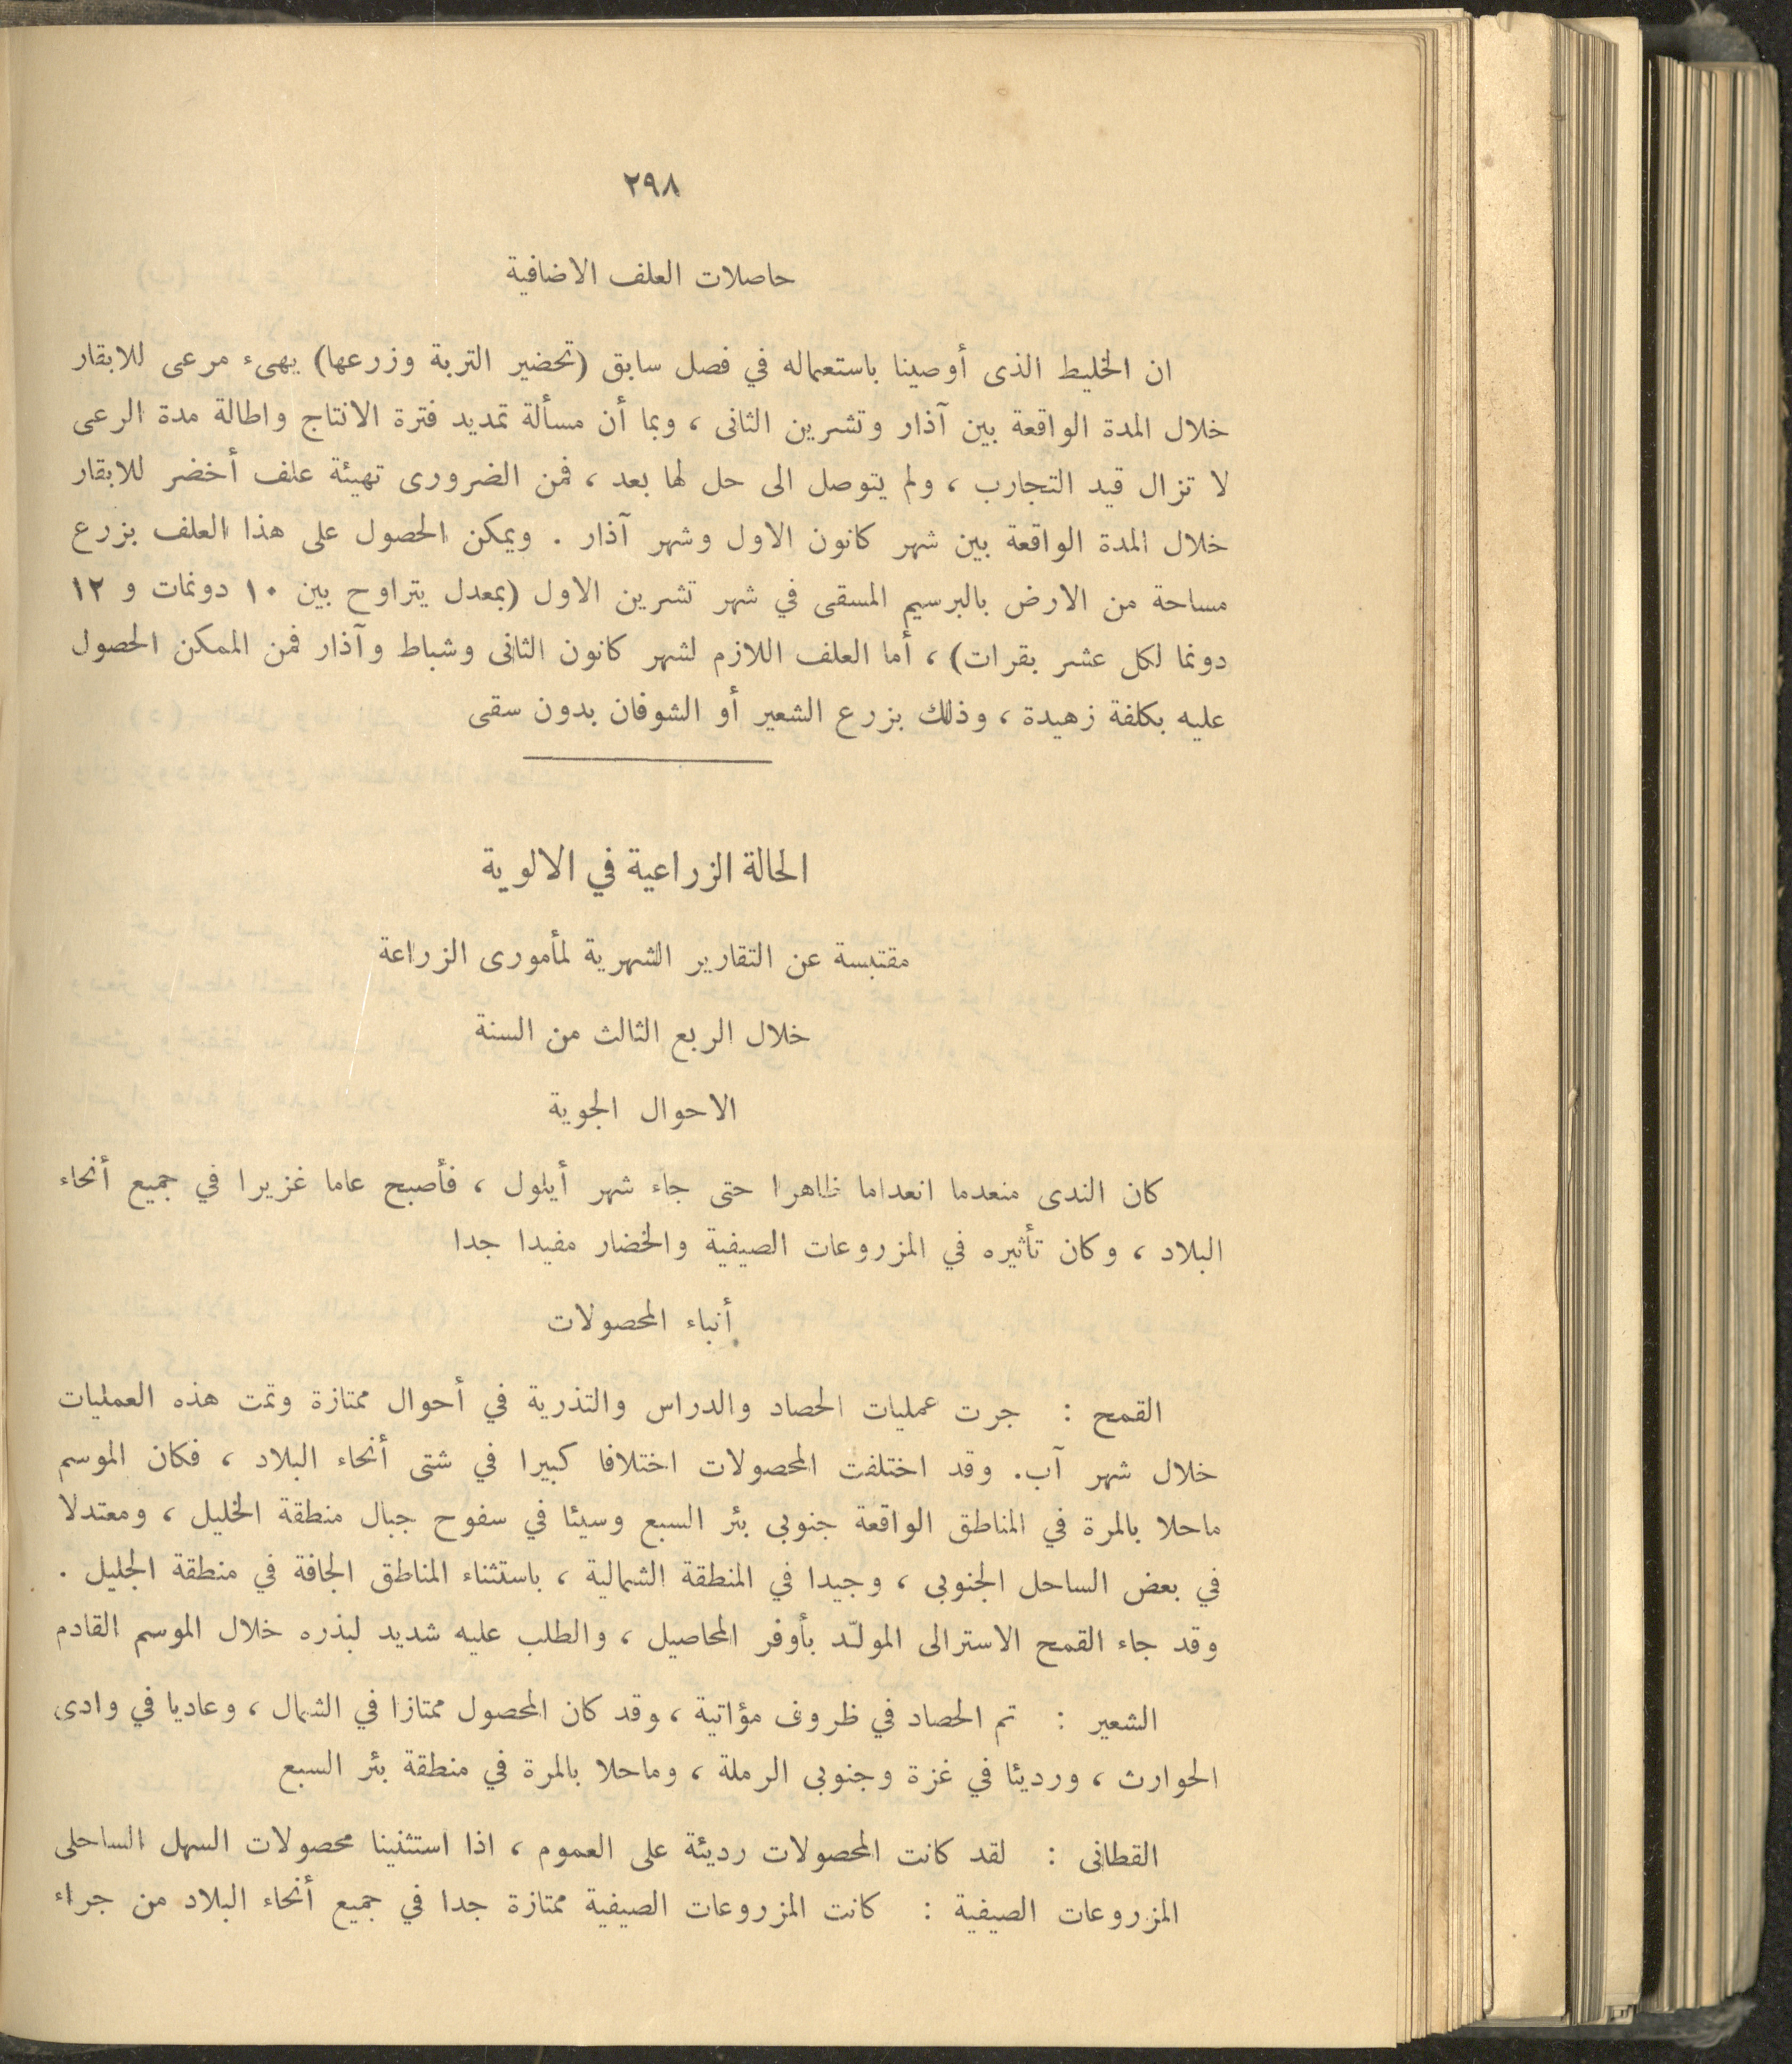 ٢٩٨
حاصلات العلف الاضافية
ان الخليط الذى أوصينا باستعماله في فصل سابق (تحضير التربة وزرعها) يهىء مرعى للابقار
خلال المدة الواقعة بين آذار وتشرين الثانى ، وبما أن مسألة تمديد فترة الانتاج واطالة مدة الرعى
لا تزال قيد التجارب ، ولم يتوصل الى حل لها بعد ، فمن الضرورى تهيئة علف أخضر للابقار
خلال المدة الواقعة بين شهر كانون الاول وشهر آذار . ويمكن الحصول على هذا العلف بزرع
مساحة من الارض بالبرسيم المسقى في شهر تشرين الاول (بمعدل يتراوح بين ١٠ دونمات و ١٢
دونما لكل عشر بقرات) ، أما العلف اللازم لشهر كانون الثانى وشباط وآذار فمن الممكن الحصول
عليه بكلفة زهيدة ، وذلك بزرع الشعير أو الشوفان بدون سقى
الحالة الزراعية في الالوية
مقتبسة عن التقارير الشهرية لمأمورى الزراعة
خلال الربع الثالث من السنة
الاحوال الجوية
كان الندى منعدما انعداما ظاهرا حتى جاء شهر أيلول ، فأصبح عاما غزيرا في جميع أنحاء
البلاد ، وكان تأثيره في المزروعات الصيفية والخضار مفيدا جدا
أنباء المحصولات
القمح : جرت عمليات الحصاد والدراس والتذرية في أحوال ممتازة وتمت هذه العمليات
خلال شهر آب. وقد اختلفت المحصولات اختلافا كبيرا في شتى أنحاء البلاد ، فكان الموسم
ماحلا بالمرة في المناطق الواقعة جنوبى بئر السبع وسيئا في سفوح جبال منطقة الخليل ، ومعتدلا
في بعض الساحل الجنوبى ، وجيدا في المنطقة الشمالية ، باستثناء المناطق الجافة في منطقة الجليل .
وقد جاء القمح الاسترالى المولّد بأوفر المحاصيل ، والطلب عليه شديد لبذره خلال الموسم القادم
الشعير : تم الحصاد في ظروف مؤاتية ، وقد كان المحصول ممتازا في الشمال ، وعاديا في وادى
الحوارث ، ورديئا في غزة وجنوبى الرملة ، وماحلا بالمرة في منطقة بئر السبع
القطانى : لقد كانت المحصولات رديئة على العموم ، اذا استثنينا محصولات السهل الساحلى
المزروعات الصيفية : كانت المزروعات الصيفية ممتازة جدا في جميع أنحاء البلاد من جراء